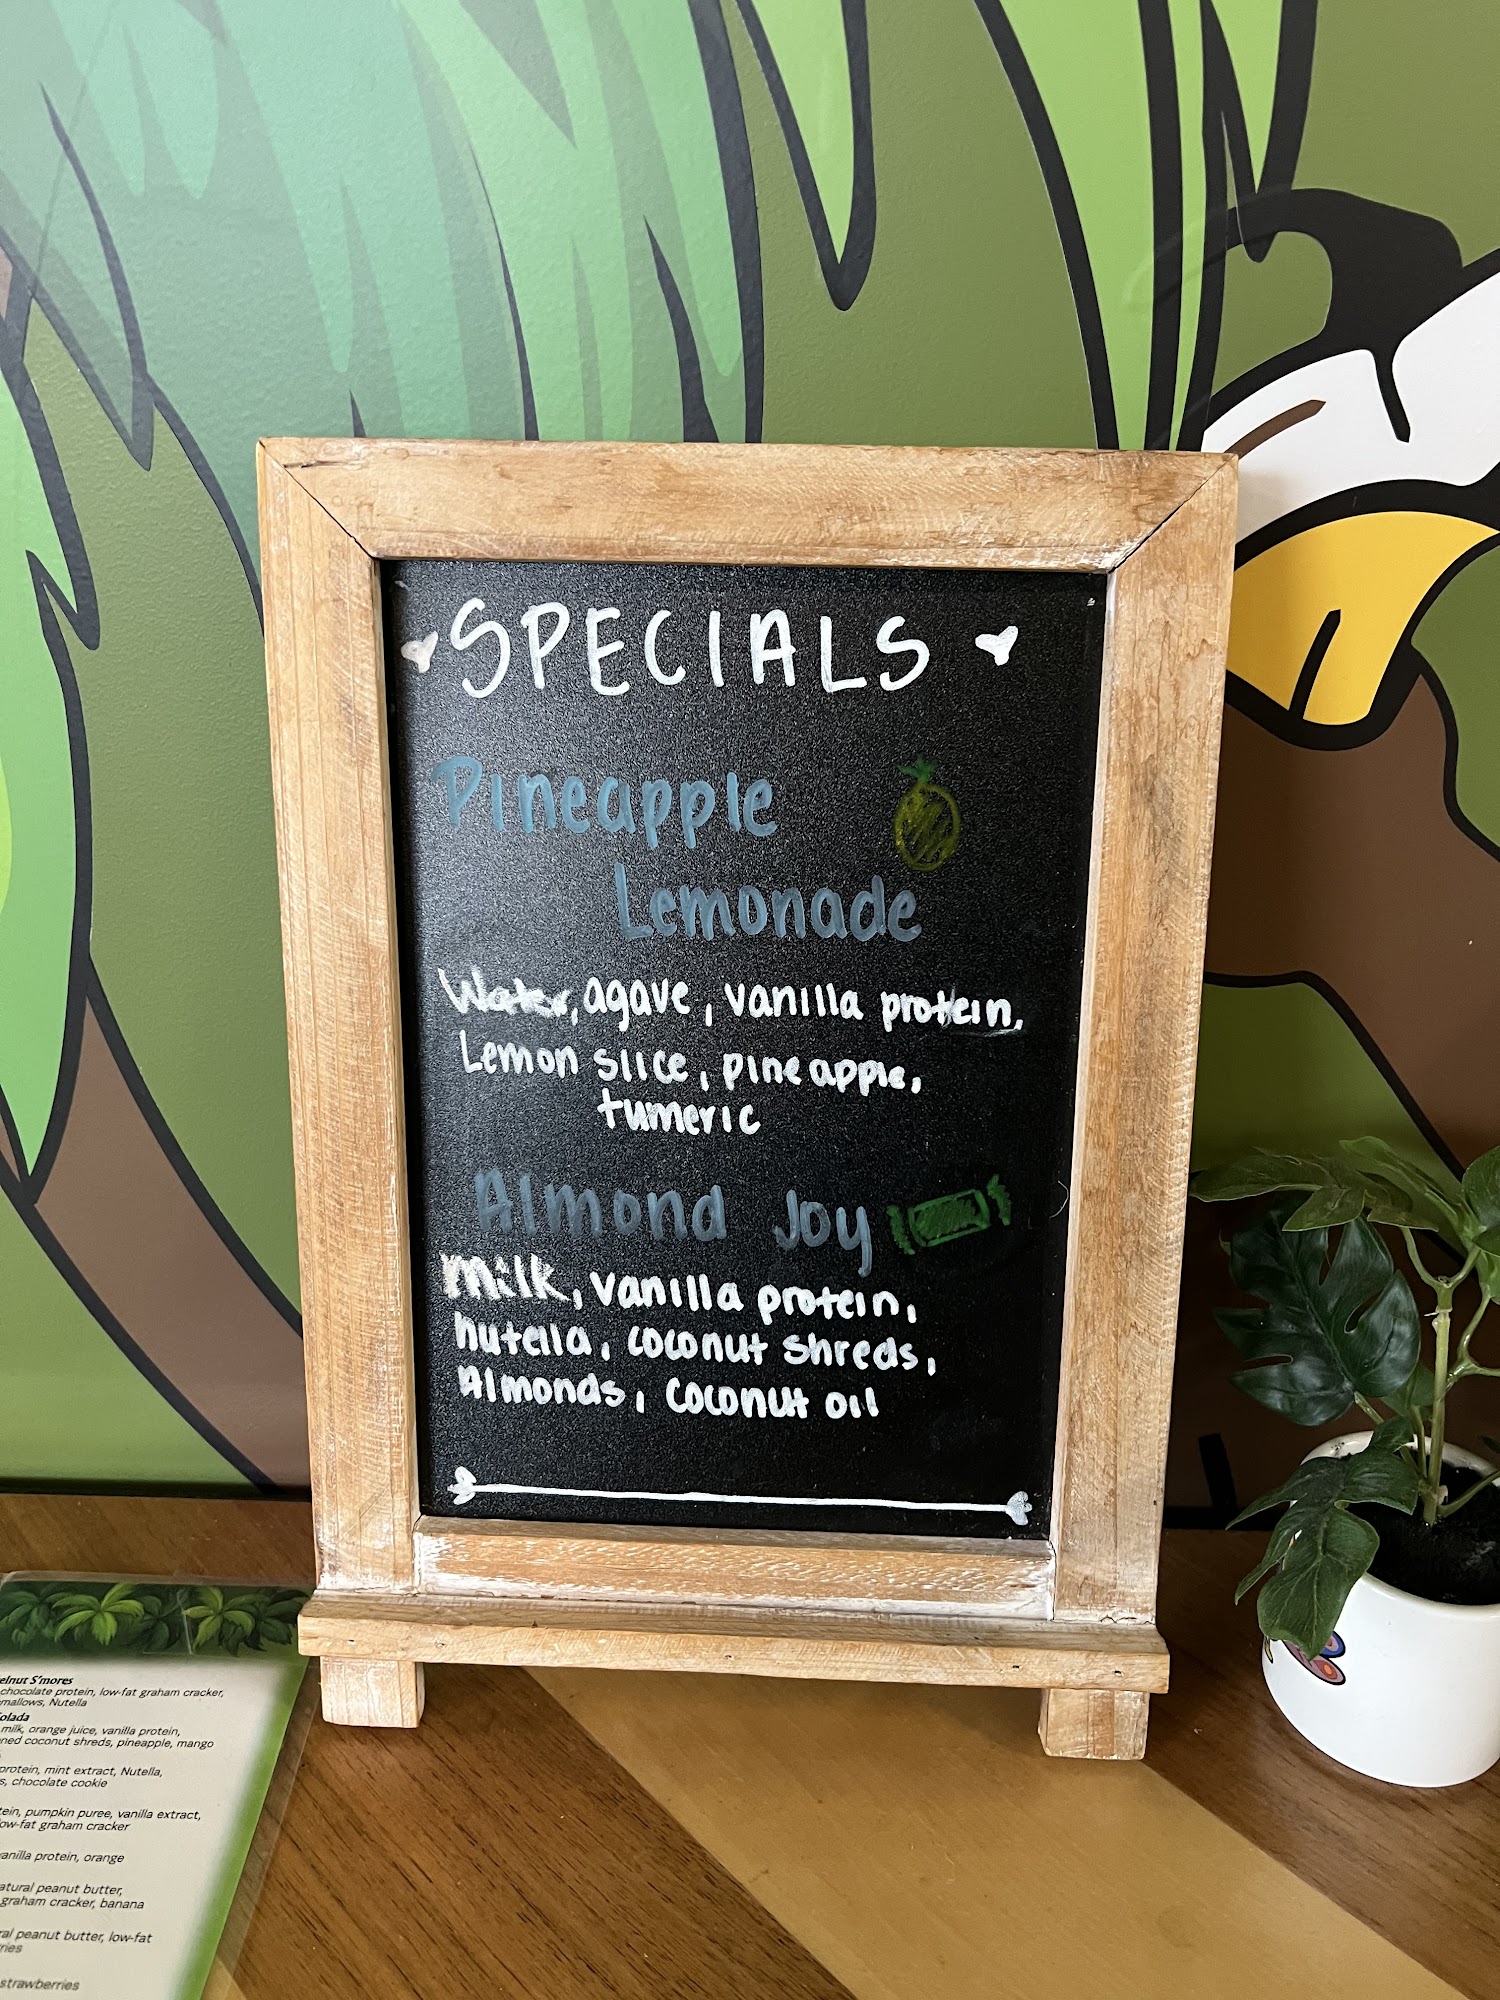 SPECIALS
Pineapple
Lemonade
Water, agave, vanilla protein,
Lemon slice, pineapple,
tumeric
Almond Joy
Milk, vanilla protein,
nutella, coconut shreds,
Almonds, coconut oil
elnut S'mores
chocolate protein, low-fat graham cracker,
mallows, Nutella
olada
milk, orange juice, vanilla protein,
ned coconut shreds, pineapple, mango
protein, mint extract, Nutella,
s, chocolate cookie
tein, pumpkin puree, vanilla extract,
ow-fat graham cracker
vanilla protein, orange
atural peanut butter,
graham cracker, banana
ral peanut butter, low-fat
ries
strawberries